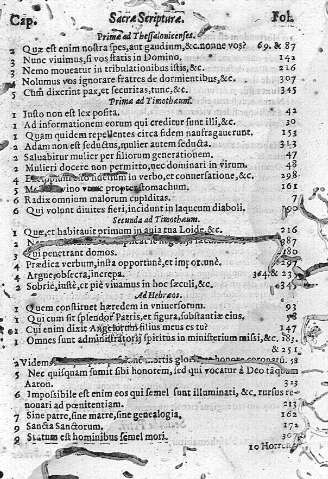 Cap. Sacræ Scripturæ. Fol.
Prima ad Thessalonicenses.
2 Quæ est enim nostra spes, aut gaudium, &c. nonne vos? 69. & 87
3 Nunc vivimus, si vos statis in Domino, 142
3 Nemo moveatur in tribulationibus istis, &c. 226
4 Nolumus vos ignorare fratres de dormientibus, &c. 307
5 Cùm dixerint pax, et securitas, tunc, &c. 345
Prima ad Timothæum.
1 Iusto non est lex posita. 42
1 Ad informationem eorum qui creditur sunt illi, &c. 30
1 Quam quidem repellentes circa fidem naufragaverunt. 153
2 Adam non est seductus, mulier autem seducta. 313
2 Salvabitur mulier per filiorum generationem, 47
2 Mulieri docere non permitto, nec dominari in virum. 48
in verbo, et conversatione, &c. 298
5 vino propter stomachum. 161
6 Radix omnium malorum cupiditas.
6 Qui volunt divites fieri, incidunt in laqueum diaboli.
Secunda ad Timothæum.
1 Quæ, et habitavit primum in avia tua Loide, &c. 216
2 987
Qui penetrant domos.
4 Prædica verbum, insta opportunè, et importunè. 297
4 Argue, obsecra, increpa. 364. & 23
Sobriè, iustè, et piè vivamus in hoc sæculi, &c. 236
Ad Hebræos.
1 Quem constituet hæredem in vniversorum. 93
1 Qui cum sit splendor Patris, et figura, substantiæ eius,
1 Cui enim dixit Angelorum filius meus es tu? 147
1 Omnes sunt administratorij spiritus in ministerium missi, &c.
& 251
2 Videmus mortis gloria
5 Nec quisquam sumit sibi honorem, sed qui vocatur à Deo tāquam
Aaron. 323
6 Impossibile est enim eos qui semel sunt illuminati, &c. rursus re-
novari ad pœnitentiam. 213
7 Sine patre, sine matre, sine genealogia, 162
9 Sancta Sanctorum. 172
9 Statum est hominibus semel mori. 307